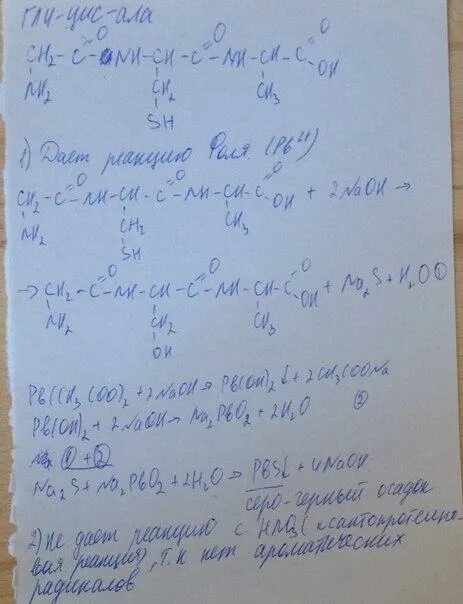 гли-цис-ала
O O O
CH2 - C - NH - CH - C - NH - CH - C
NH2 CH2 CH3 OH
SH
1) Дает реакцию Фоля (Pb2+)
O O O
CH2 - C - NH - CH - C - NH - CH - C + 2NaOH →
NH2 CH2 CH3 OH
SH
O O O
→ CH2 - C - NH - CH - C - NH - CH - C + Na2S + H2O ①
NH2 CH2 CH3 OH
OH
Pb(CH3COO)2 + 2NaOH → Pb(OH)2↓ + 2CH3COONa
Pb(OH)2 + 2NaOH → Na2PbO2 + 2H2O ②
① + ②
Na2S + Na2PbO2 + 2H2O → PbS↓ + 4NaOH
серо-черный осадок
2) не дает реакцию с HNO3 (ксантопротеино-
вая реакция), т.к нет ароматических
радикалов